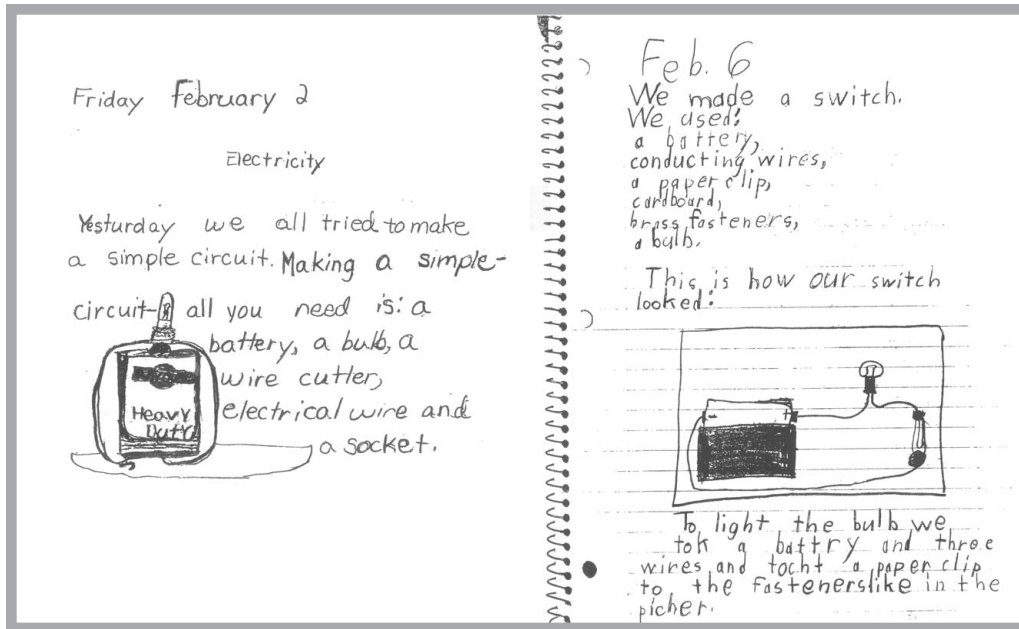 Friday February 2
Electricity
Yesturday we all tried to make
a simple circuit. Making a simple-
circuit- all you need is: a
battery, a bulb, a
wire cutter,
electrical wire and
a socket.
Heavy
Duty
Feb. 6
We made a switch.
We used:
a battery,
conducting wires,
a paper clip,
cardboard,
brass fasteners,
a bulb.
This is how our switch
looked:
- +
To light the bulb we
tok a battry and three
wires and tocht a paper clip
to the fasteners like in the
picher.